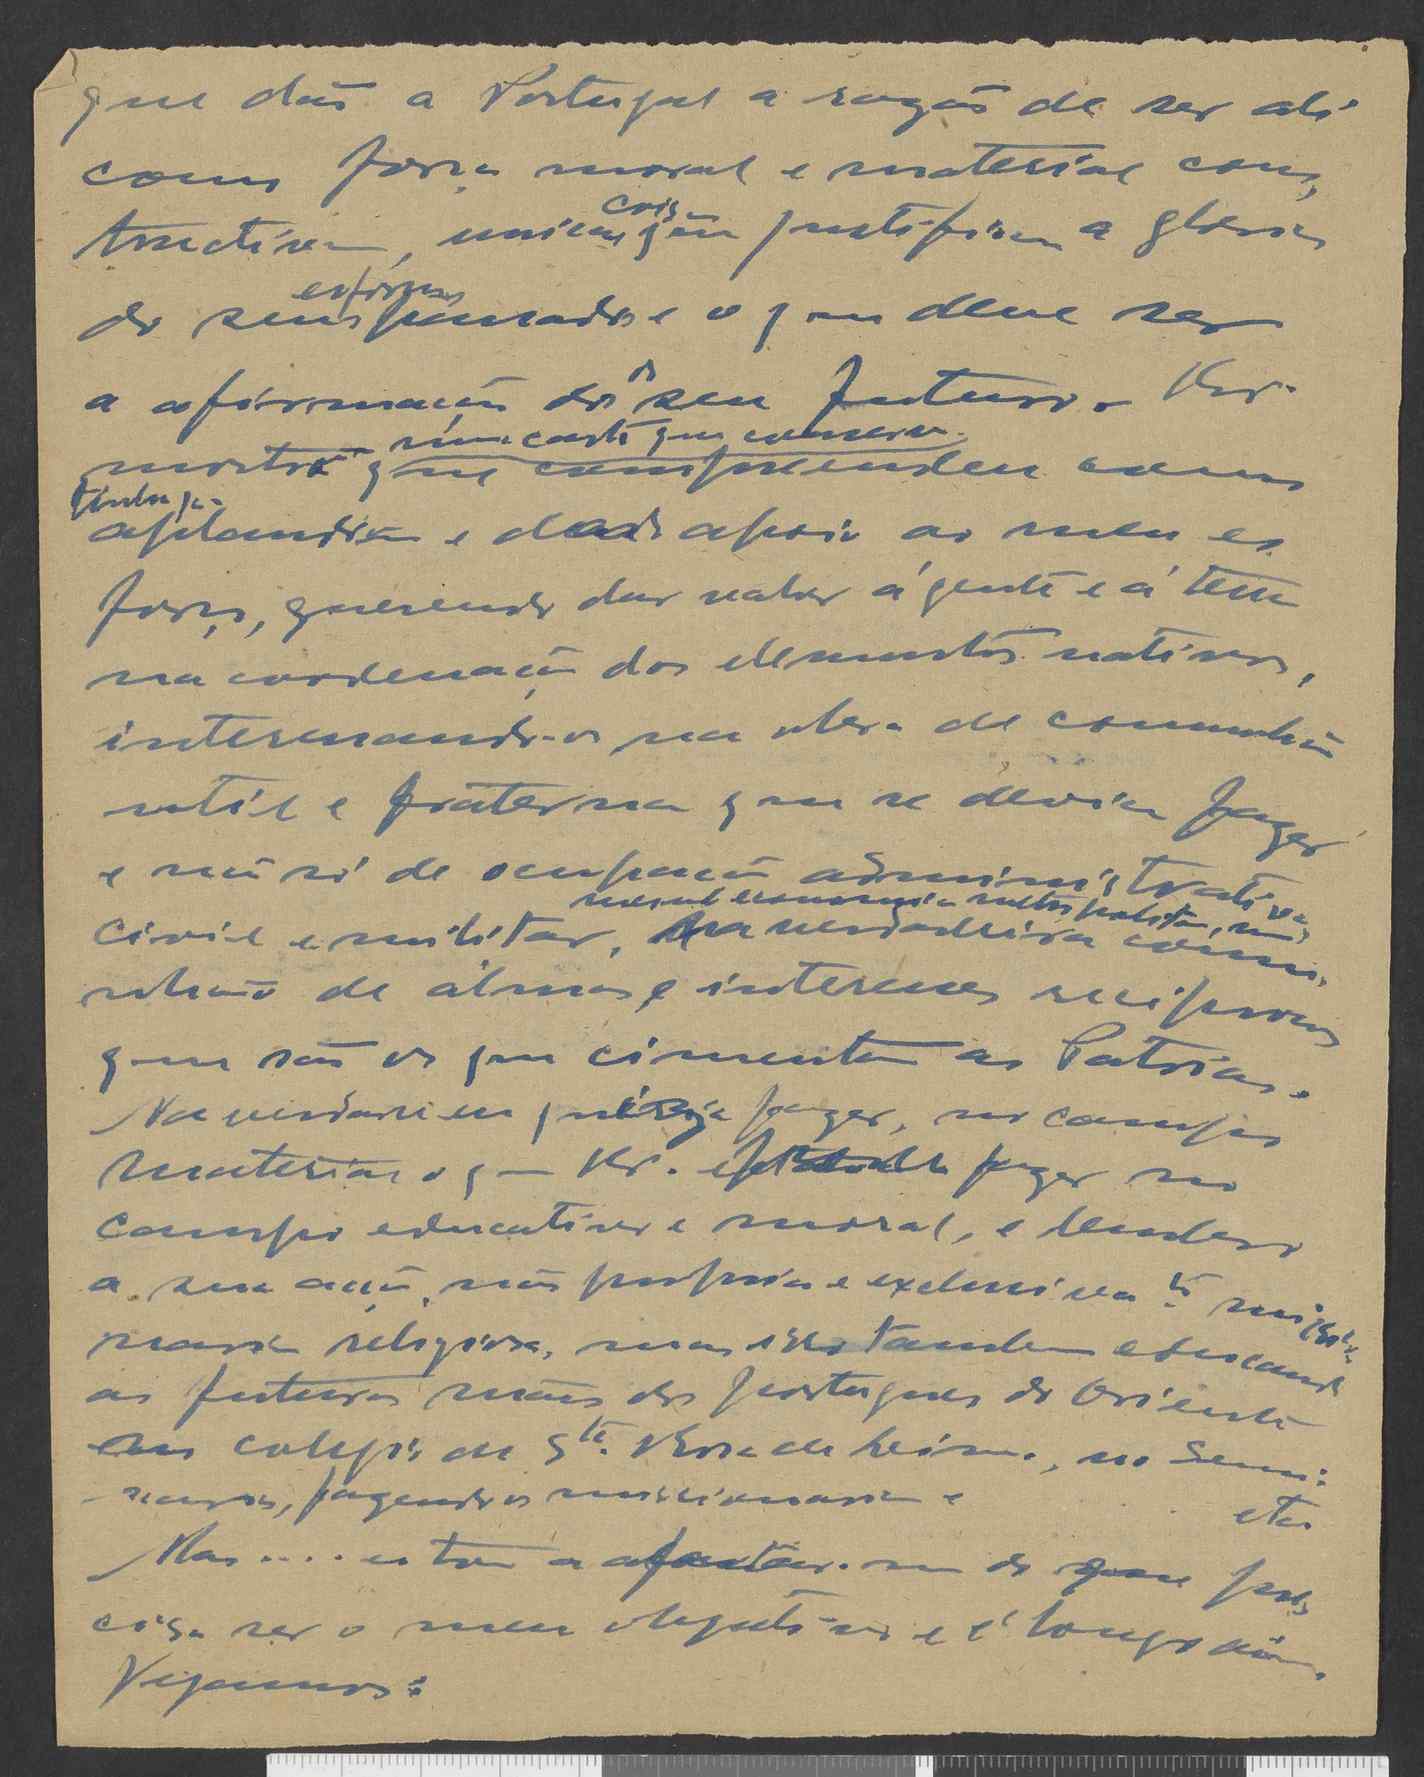 que dão a Portugal a razão de ser ali
como força moral e material cons
tructiva, unicas cois que justificam a gloria
do seus esforços passados e o que deve ser
a afirmação do seu futuro. Vr.
mostra numa carta que conservo
que comprenden como
Timor
aplaudiu e deu apoio ao meu es
forço, querendo dar valor á gente e á terra
na cordenação dos elementos nativos,
interessando-os na obra de comunhão
util e fraterna que se devia fazer
e não só de ocupação administrativa
civil e militar, na verdadeira comu
nhão de almas e interesses reciprocos
que são os que cimentam as Patrias.
Na verdade eu fazer, no campo
material o que Vr. fazer no
campo educativo e moral, e
a sua acção não propria e exclusiva
religiosa, mas tambem educando
as futuras mães dos portugueses do Oriente
no colegio de Sta. Rosa de Lima, no Semi:
narios, fazendo os missionarios e
etc
Mas .... estou a afastar-me do que pre
cisa ser o meu objectivo e é longo
Vejamos: